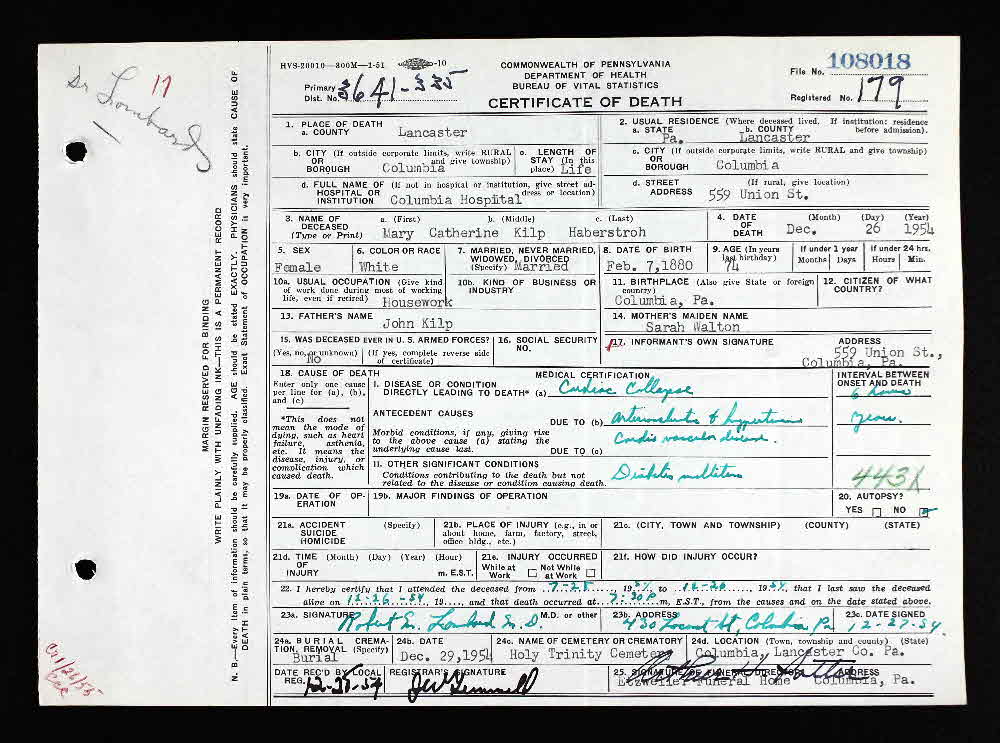 Dr Lombard
17
HVS-20010—300M—1-51 -10
COMMONWEALTH OF PENNSYLVANIA
DEPARTMENT OF HEALTH
BUREAU OF VITAL STATISTICS
CERTIFICATE OF DEATH
File No. 108018
Primary Dist. No. 3641-335
Registered No. 179
MARGIN RESERVED FOR BINDING
WRITE PLAINLY WITH UNFADING INK—THIS IS A PERMANENT RECORD
N. B.—Every item of information should be carefully supplied. AGE should be stated EXACTLY. PHYSICIANS should state CAUSE OF
DEATH in plain terms, so that it may be properly classified. Exact Statement of OCCUPATION is very important.
1. PLACE OF DEATH
a. COUNTY Lancaster
2. USUAL RESIDENCE (Where deceased lived. If institution: residence before admission).
a. STATE Pa. b. COUNTY Lancaster
b. CITY (If outside corporate limits, write RURAL and give township) OR BOROUGH Columbia
c. LENGTH OF STAY (In this place) Life
c. CITY (If outside corporate limits, write RURAL and give township) OR BOROUGH Columbia
d. FULL NAME OF (If not in hospital or institution, give street address or location) HOSPITAL OR INSTITUTION Columbia Hospital
d. STREET ADDRESS (If rural, give location) 559 Union St.
3. NAME OF DECEASED (Type or Print) a. (First) b. (Middle) c. (Last)
Mary Catherine Kilp Haberstroh
4. DATE OF DEATH (Month) (Day) (Year)
Dec. 26 1954
5. SEX Female
6. COLOR OR RACE White
7. MARRIED, NEVER MARRIED, WIDOWED, DIVORCED (Specify) Married
8. DATE OF BIRTH Feb. 7,1880
9. AGE (In years last birthday) 74
If under 1 year Months Days
If under 24 hrs. Hours Min.
10a. USUAL OCCUPATION (Give kind of work done during most of working life, even if retired) Housework
10b. KIND OF BUSINESS OR INDUSTRY
11. BIRTHPLACE (Also give State or foreign country) Columbia, Pa.
12. CITIZEN OF WHAT COUNTRY?
13. FATHER'S NAME John Kilp
14. MOTHER'S MAIDEN NAME Sarah Walton
15. WAS DECEASED EVER IN U. S. ARMED FORCES?
(Yes, no, or unknown) No (If yes, complete reverse side of certificate)
16. SOCIAL SECURITY NO.
17. INFORMANT'S OWN SIGNATURE
ADDRESS 559 Union St., Columbia, Pa.
18. CAUSE OF DEATH
Enter only one cause per line for (a), (b), and (c)
*This does not mean the mode of dying, such as heart failure, asthenia, etc. It means the disease, injury, or complication which caused death.
MEDICAL CERTIFICATION
I. DISEASE OR CONDITION DIRECTLY LEADING TO DEATH* (a) Cardiac Collapse
INTERVAL BETWEEN ONSET AND DEATH
6 hours
ANTECEDENT CAUSES
Morbid conditions, if any, giving rise to the above cause (a) stating the underlying cause last.
DUE TO (b) arteriosclerotic & hypertensive
years.
Cardio vascular disease.
DUE TO (c)
II. OTHER SIGNIFICANT CONDITIONS
Conditions contributing to the death but not related to the disease or condition causing death.
Diabetes mellitus
443X
19a. DATE OF OPERATION
19b. MAJOR FINDINGS OF OPERATION
20. AUTOPSY?
YES NO
21a. ACCIDENT SUICIDE HOMICIDE (Specify)
21b. PLACE OF INJURY (e.g., in or about home, farm, factory, street, office bldg., etc.)
21c. (CITY, TOWN AND TOWNSHIP) (COUNTY) (STATE)
21d. TIME OF INJURY (Month) (Day) (Year) (Hour) m. E.S.T.
21e. INJURY OCCURRED While at Work Not While at Work
21f. HOW DID INJURY OCCUR?
22. I hereby certify that I attended the deceased from 7-25, 1954 to 12-26, 1954, that I last saw the deceased
alive on 12-26-54, 19...., and that death occurred at 7:30 P m, E.S.T., from the causes and on the date stated above.
23a. SIGNATURE Robert S. Lombard M.D. M.D. or other
23b. ADDRESS 430 Locust St, Columbia Pa
23c. DATE SIGNED 12-27-54
24a. BURIAL CREMATION, REMOVAL (Specify) Burial
24b. DATE Dec. 29,1954
24c. NAME OF CEMETERY OR CREMATORY Holy Trinity Cemetery
24d. LOCATION (Town, township and county) (State) Columbia, Lancaster Co. Pa.
DATE REC'D BY LOCAL REG.
REGISTRAR'S SIGNATURE
25. SIGNATURE OF FUNERAL DIRECTOR ADDRESS
Etzweiler Funeral Home Columbia, Pa.